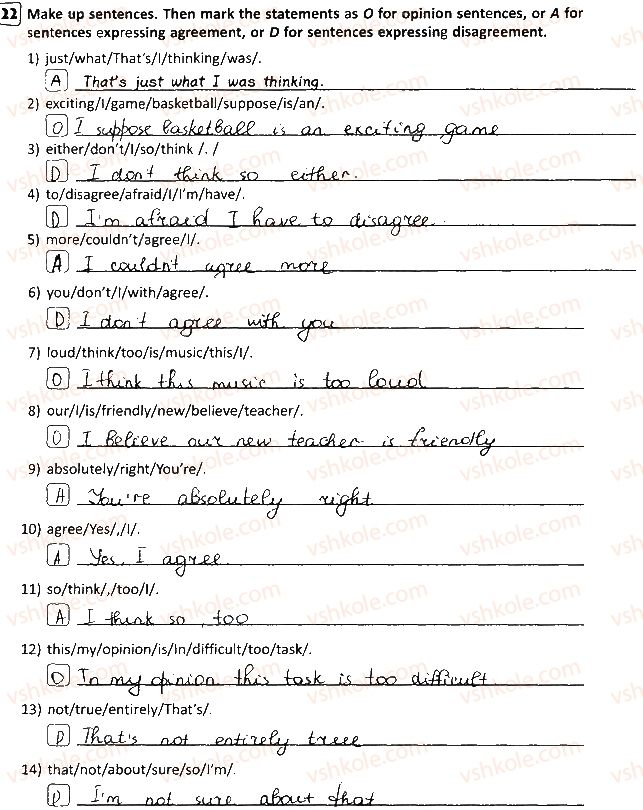 22 Make up sentences. Then mark the statements as O for opinion sentences, or A for
sentences expressing agreement, or D for sentences expressing disagreement.
1) just/what/That's/I/thinking/was/.
A That's just what I was thinking.
2) exciting/I/game/basketball/suppose/is/an/.
O I suppose basketball is an exciting game
3) either/don't/I/so/think /. /
D I don't think so either.
4) to/disagree/afraid/I/I'm/have/.
D I'm afraid I have to disagree.
5) more/couldn't/agree/I/.
A I couldn't agree more
6) you/don't/I/with/agree/.
D I don't agree with you
7) loud/think/too/is/music/this/I/.
O I think this music is too loud
8) our/I/is/friendly/new/believe/teacher/.
O I believe our new teacher is friendly
9) absolutely/right/You're/.
A You're absolutely right
10) agree/Yes/,/I/.
A Yes, I agree.
11) so/think/,/too/I/.
A I think so, too
12) this/my/opinion/is/In/difficult/too/task/.
O In my opinion this task is too difficult
13) not/true/entirely/That's/.
D That's not entirely true
14) that/not/about/sure/so/I'm/.
D I'm not sure about that
vshkole.com